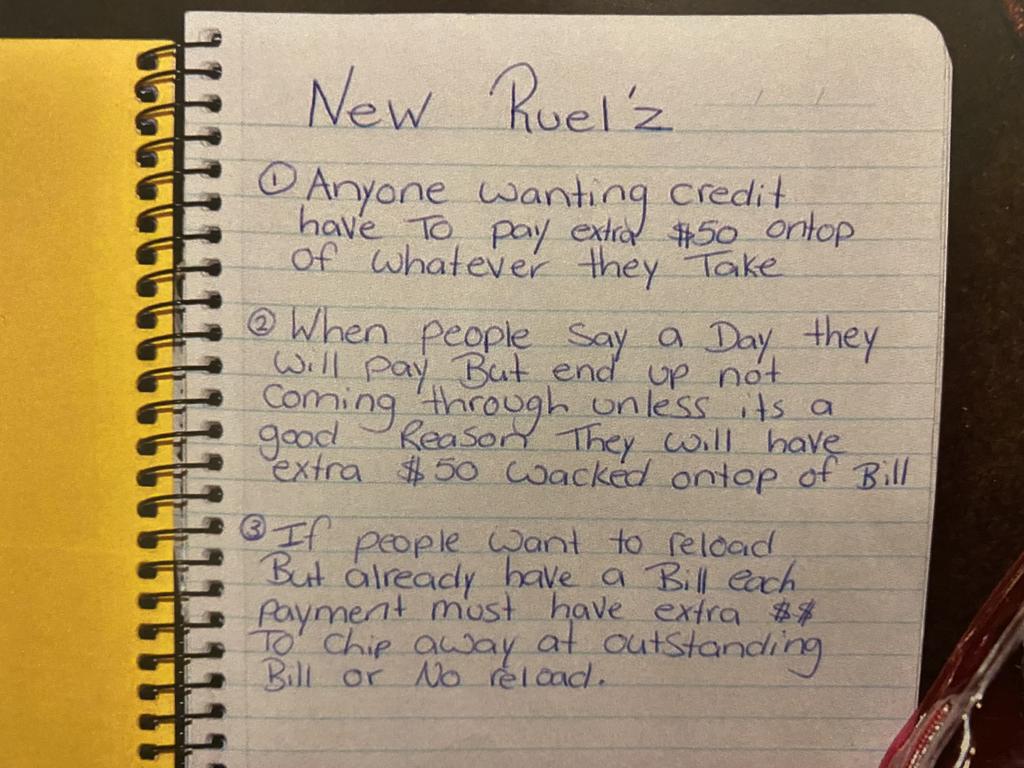 New Ruel'z
① Anyone wanting credit
have To pay extra $50 ontop
of whatever they Take
② When people say a Day they
will pay But end up not
coming through unless its a
good Reason They will have
extra $50 wacked ontop of Bill
③ If people want to reload
But already have a Bill each
payment must have extra $$
To chip away at outstanding
Bill or No reload.